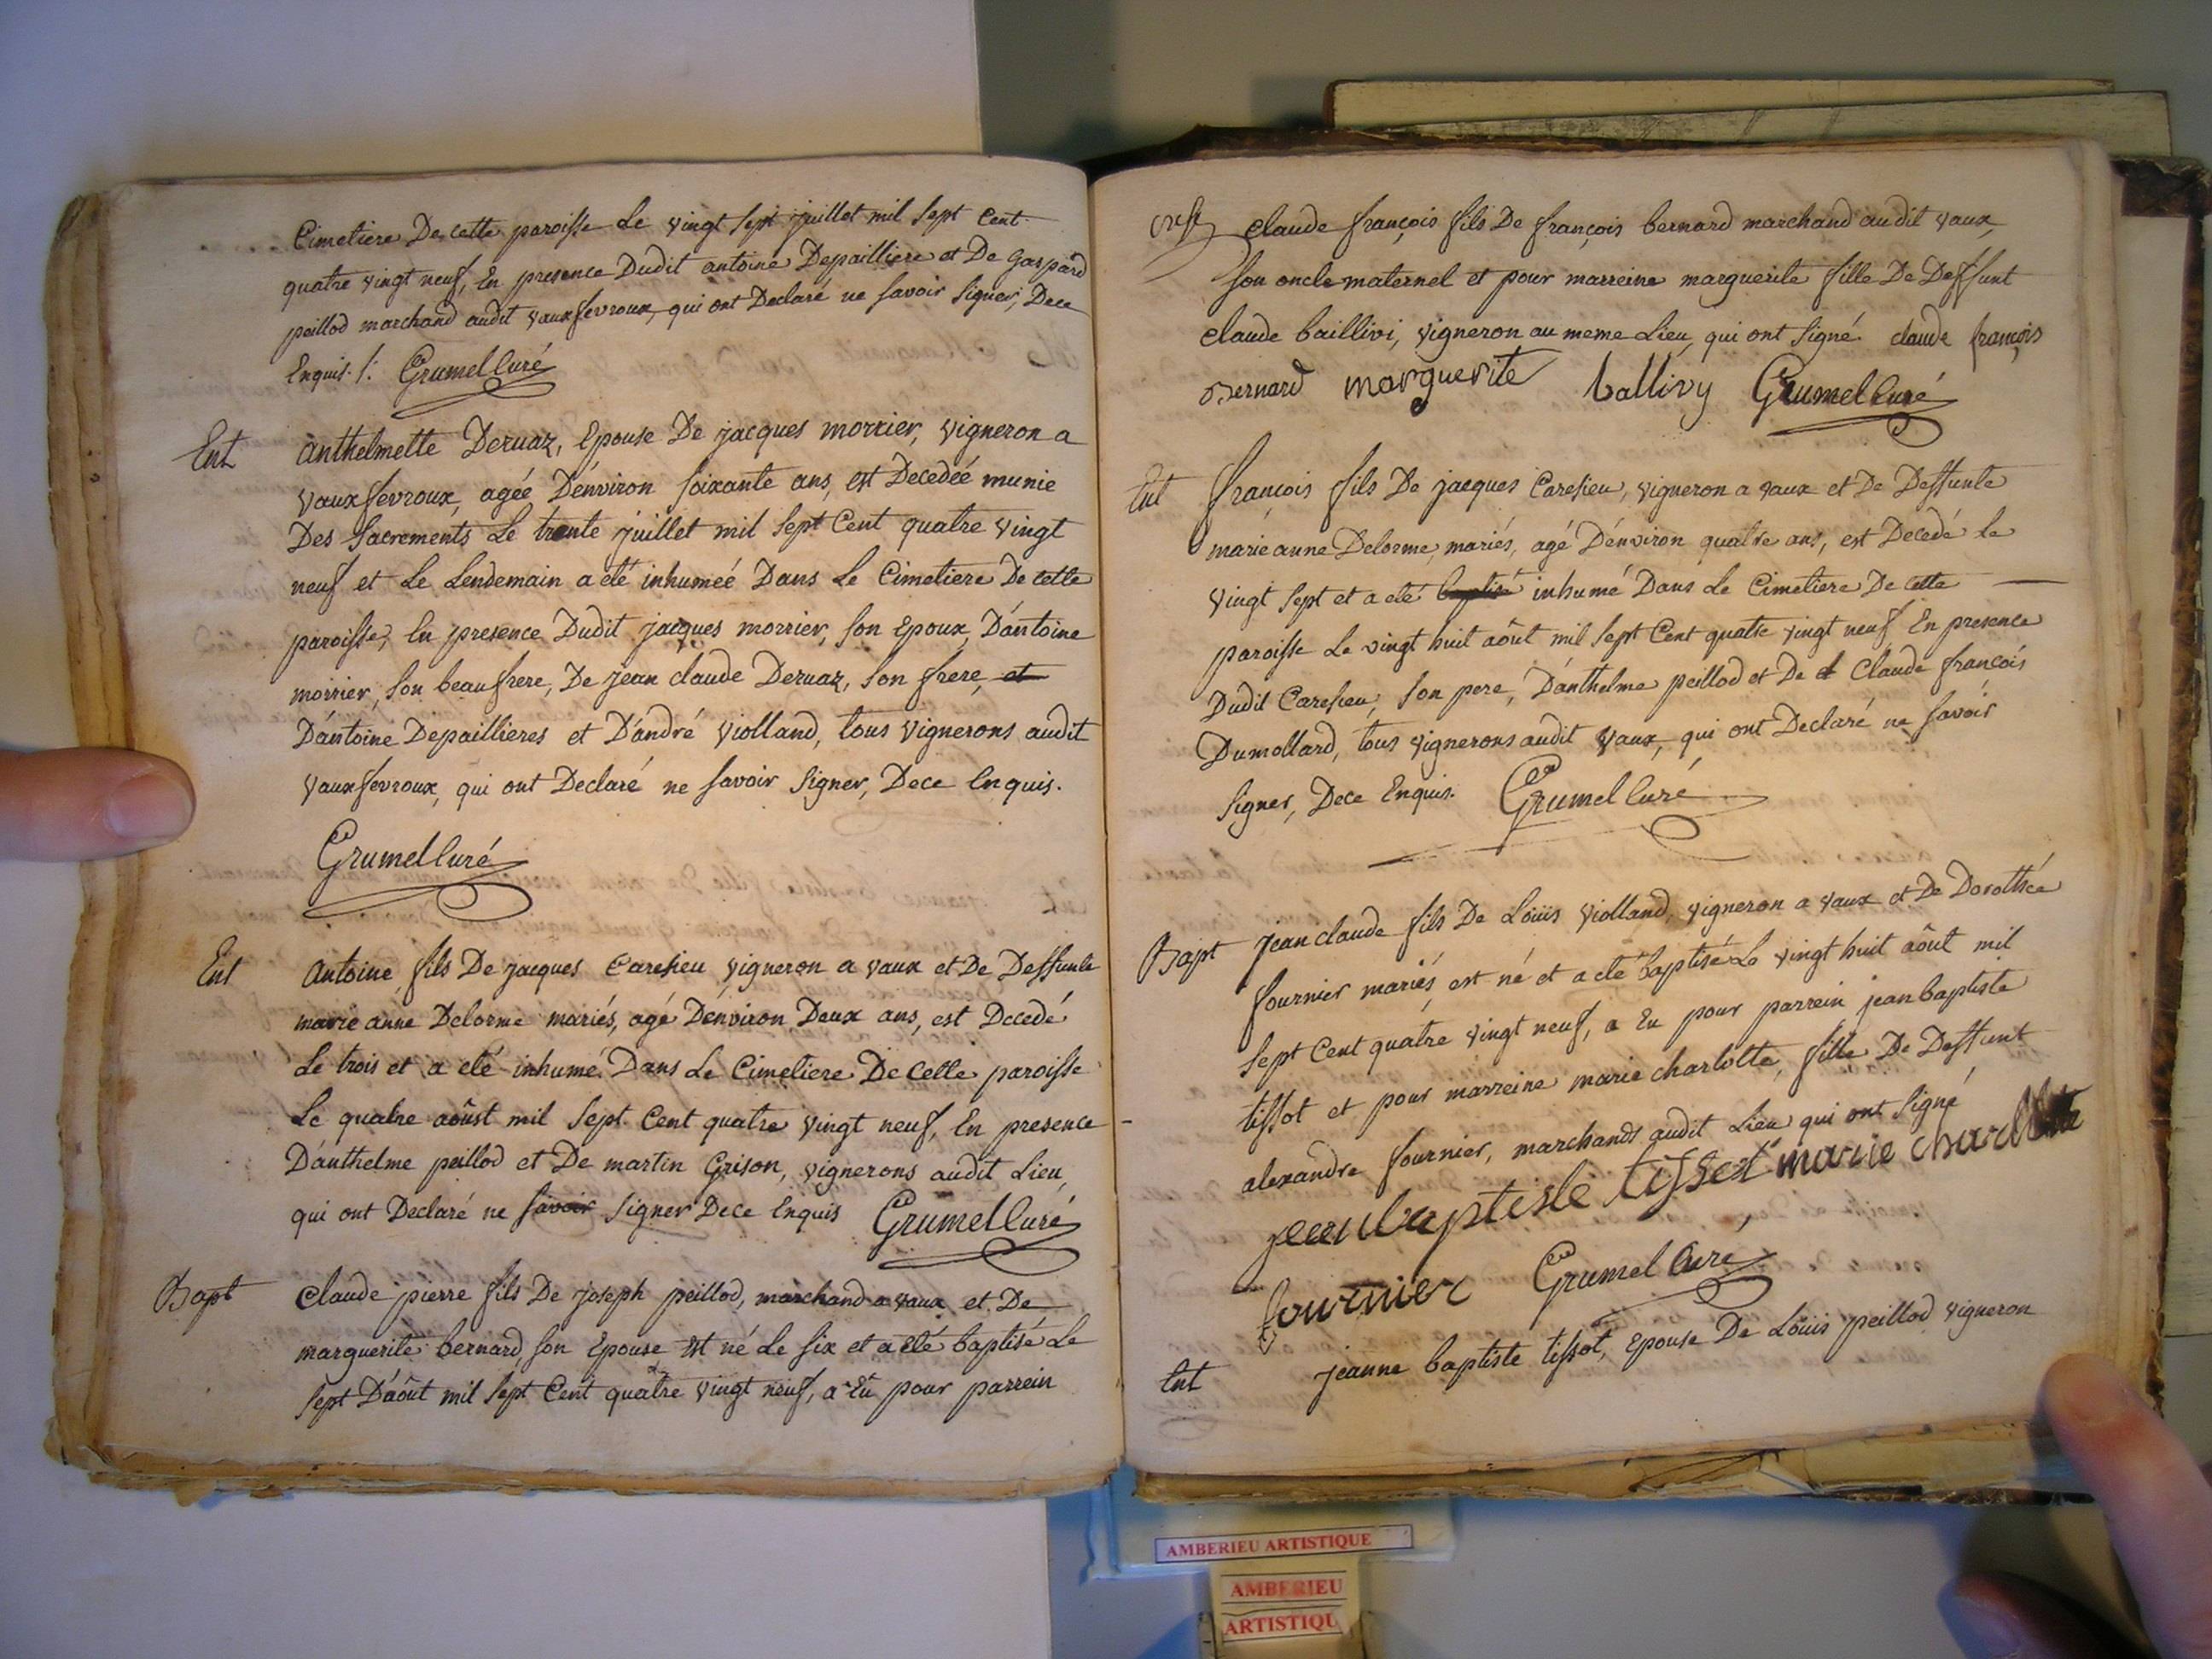 Cimetiere De cette paroisse Le vingt sept juillet mil sept Cent
quatre vingt neuf, En presence Dudit antoine Depailliere et De Gaspard
peillod marchand audit vauxfevroux, qui ont Declaré ne savoir signer, Dece
Enquis. /. Grumel Curé
Ent anthelmette Deruaz, Epouse De jacques morrier, vigneron a
vauxfevroux, agée D'environ soixante ans, est Decedeé munie
Des Sacrements Le trente juillet mil sept Cent quatre vingt
neuf et Le Lendemain a eté inhumeé Dans Le Cimetiere De cette
paroisse, En presence Dudit jacques morrier, son Epoux, D'antoine
morrier, son beaufrere, De jean claude Deruaz, son frere, et
D'antoine Depaillieres et D'andré violland, tous vignerons audit
vauxfevroux, qui ont Declaré ne savoir signer, Dece Enquis.
Grumel Curé
Ent antoine, fils De jacques Caresieu vigneron a vaux et De Deffunte
marie anne Delorme mariés, agé D'environ Deux ans, est Decedé
Le trois et a eté inhumé Dans Le Cimetiere De Cette paroisse
Le quatre aôust mil sept Cent quatre vingt neuf, En presence
D'anthelme peillod et De martin Grison, vignerons audit Lieu,
qui ont Declaré ne savoir signer Dece Enquis Grumel Curé
Bapt claude pierre fils De joseph peillod, marchand a vaux et De
marguerite bernard, son Epouse est né Le six et a eté baptisé Le
sept D'aôut mil sept Cent quatre vingt neuf, a Eu pour parrein
claude françois fils De françois bernard marchand audit vaux,
son oncle maternel et pour marreine marguerite fille De Deffunt
claude baillivi, vigneron au meme Lieu, qui ont signé. claude françois
Bernard marguerite ballivy Grumel Curé
Ent françois fils De jacques Caresieu, vigneron a vaux et De Deffunte
marie anne Delorme, mariés, agé D'environ quatre ans, est Decedé Le
vingt sept et a eté baptisé inhumé Dans Le Cimetiere De cette
paroisse Le vingt huit aôut mil sept Cent quatre vingt neuf En presence
Dudit Caresieu, son pere, D'anthelme peillod et De Claude françois
Dumollard, tous vignerons audit vaux, qui ont Declaré ne savoir
signer, Dece Enquis. Grumel Curé
Bapt jean claude fils De Loüis violland, vigneron a vaux et De Dorothée
fournier mariés, est né et a eté baptisé Le vingt huit aôut mil
sept Cent quatre vingt neuf, a Eu pour parrein jean baptiste
tissot et pour marreine marie charlotte, fille De Deffunt
alexandre fournier, marchands audit Lieu qui ont signé
jean baptiste tissot marie charllotte
fournier Grumel Curé
Ent jeanne baptiste tissot, Epouse De Loüis peillod vigneron
AMBERIEU ARTISTIQUE
AMBERIEU
ARTISTIQU